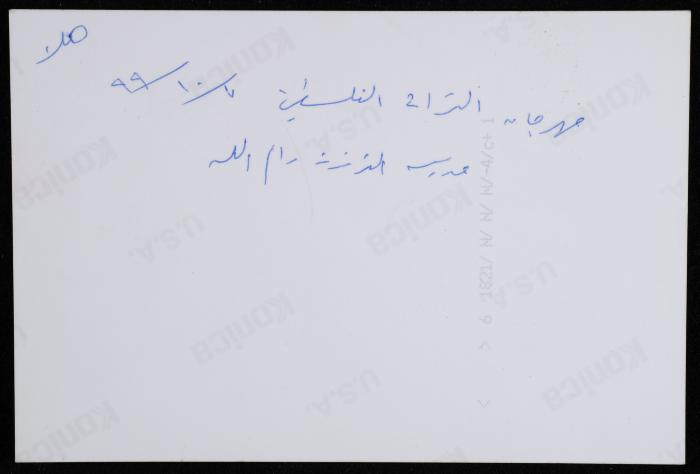 هلا
مهرجان التراث الفلسطيني ٧/١٠/٩٩
مدرسة الفرندز رام الله
Konica U.S.A.
< > 6 1821/ N/ N/ N/-4/c+ 1